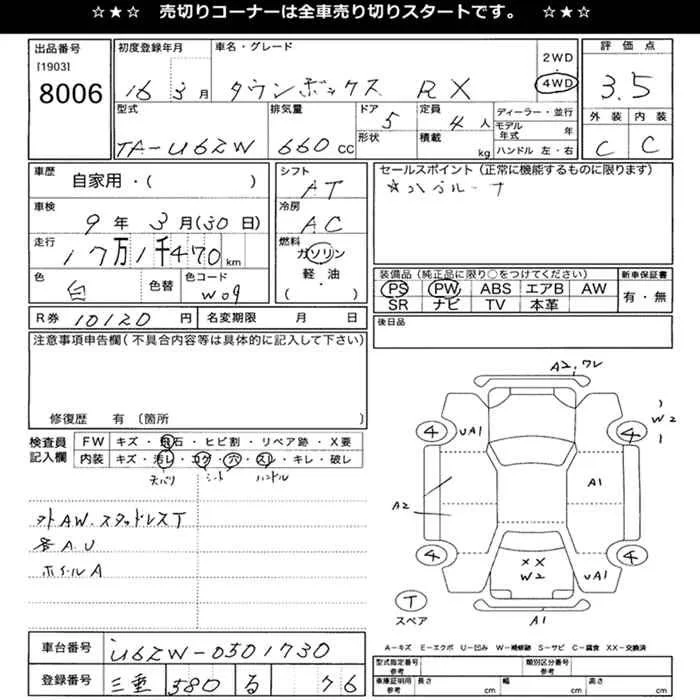 ☆★☆ 売切りコーナーは全車売り切りスタートです。 ☆★☆
出品番号
[1903]
8006
初度登録年月
16 3月
車名・グレード
タウンボックス RX
2WD
・
4WD
評価点
3.5
外装 内装
C C
型式
TA-U62W
排気量
660 cc
ドア
5
形状
定員
4 人
積載
kg
ディーラー・並行
モデル年式 年
ハンドル 左・右
車歴
自家用・( )
車検
9年 3月(30日)
走行
17万1千470 km
色
白
色替
色コード
W09
シフト
AT
冷房
AC
燃料
ガソリン
軽・油
( )
セールスポイント(正常に機能するものに限ります)
装備品(純正品に限り○をつけてください)
PS PW ABS エアB AW
SR ナビ TV 本革
新車保証書
有・無
R券 10120 円
名変期限 月 日
後日品
注意事項申告欄(不具合内容等は具体的に記入して下さい)
修復歴 有〔箇所 〕
検査員
記入欄
FW キズ・飛石・ヒビ割・リペア跡・X要
内装 キズ・汚レ・コゲ・穴・スレ・キレ・破レ
天バリ シート ハンドル
外AW.スタッドレスT
各A.U
ホイールA
A2,ワレ
W2
4 UA1 4
A1
A2
4 XX W2 UA1 4
T
スペア
A1
車台番号 U62W-0501730
登録番号 三重 580 る 76
A－キズ E－エクボ U－凹み W－補修跡 S－サビ C－腐食 XX－交換済
型式指定番号 類別区分番号
車庫証明用参考 長さ cm 幅 cm 高さ cm